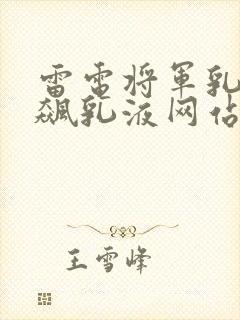 雷电将军乳
飙乳液网站
王雪峰